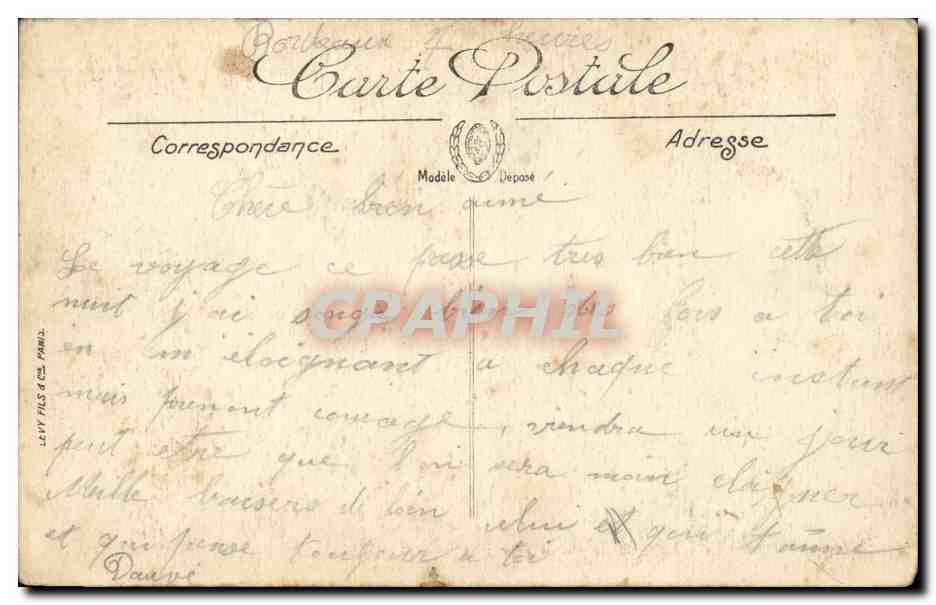 Bordeaux 7 heures
Carte Postale
Correspondance
Adresse
Modèle Déposé
Chère bien aimé
Le voyage ce passe tres bien cette
nuit j'ai songé bien des fois a toi
en m'éloignant a chaque instant
mais prenont courage, viendra un jour
peut etre que l'on sera moin éloigner
Mille baisers de celui qui t'aime
et qui pense toujour a toi
CPAPHIL
LEVY FILS & Cie PARIS.